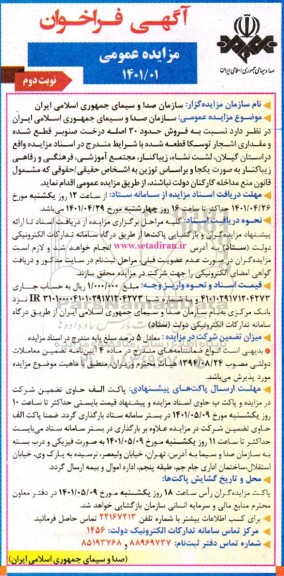 آگهی فراخوان
مزایده عمومی
۱۴۰۱/۰۱
نوبت دوم
صدا و سیمای جمهوری اسلامی ایران
نام سازمان مزایده‌گزار: سازمان صدا و سیمای جمهوری اسلامی ایران
موضوع مزایده عمومی: سازمان صدا و سیمای جمهوری اسلامی ایران
در نظر دارد نسبت به فروش حدود ۳۰ اصله درخت صنوبر قطع شده
و مقداری اشجار توسکا قطعه شده با شرایط مندرج در اسناد مزایده واقع
در استان گیلان، لشت نشاء، زیباکنار، مجتمع آموزشی، فرهنگی و رفاهی
زیباکنار به صورت یکجا و براساس توزین به اشخاص حقیقی/حقوقی که مشمول
قانون منع مداخله کارکنان دولت نباشند، از طریق مزایده عمومی اقدام نماید.
مهلت دریافت اسناد مزایده از سامانه ستاد: از ساعت ۱۲ روز یکشنبه مورخ
۱۴۰۱/۰۴/۲۶ حداکثر تا ساعت ۱۶ روز چهارشنبه مورخ ۱۴۰۱/۰۴/۲۹ می‌باشد.
نحوه دریافت اسناد: کلیه مراحل برگزاری مزایده از دریافت اسناد تا ارائه
پیشنهاد مزایده‌گران و بازگشایی پاکت‌ها از طریق درگاه سامانه تدارکات الکترونیکی
دولت (ستاد) به آدرس www.setadiran.ir انجام خواهد شد و لازم است
مزایده‌گران در صورت عدم عضویت قبلی، مراحل ثبت‌نام در سایت مذکور و دریافت
گواهی امضای الکترونیکی را جهت شرکت در مزایده محقق سازند.
قیمت اسناد و نحوه واریز وجه: مبلغ ۱/۰۰۰/۰۰۰ ریال به حساب جاری
نزد IR
بانک مرکزی به نام سازمان صدا و سیمای جمهوری اسلامی ایران از طریق درگاه
سامانه تدارکات الکترونیکی دولت (ستاد)
میزان تضمین شرکت در مزایده: معادل ۵ درصد مبلغ پایه مندرج در اسناد مزایده
بدیهی است انواع ضمانتنامه‌های مندرج در ماده ۴ آیین‌نامه تضمین معاملات
دولتی مصوب ۱۳۹۴/۰۸/۲۴ هیأت محترم وزیران، منطبق با ماهیت موضوع مزایده
مورد پذیرش می‌باشد.
مهلت ارسال پاکت‌های پیشنهادی: پاکت الف حاوی تضمین شرکت
در مزایده و پاکت ب حاوی اسناد مزایده و پیشنهاد قیمت بایستی حداکثر تا ساعت ۱۰
روز یکشنبه مورخ ۱۴۰۱/۰۵/۰۹ در بستر سامانه ستاد بارگذاری گردد. ضمنا پاکت الف
حاوی تضمین شرکت در مزایده علاوه بر بارگذاری در بستر سامانه ستاد می‌بایست
حداکثر تا ساعت ۱۱ روز یکشنبه مورخ ۱۴۰۱/۰۵/۰۹ به صورت فیزیکی و درب بسته
به سازمان صدا و سیما به آدرس: تهران، خیابان ولیعصر، نرسیده به پارک وی، خیابان
استقلال، ساختمان اداری جام جم، طبقه پنجم، اداره اموال و بیمه ارسال گردد.
محل و تاریخ گشایش پاکت‌ها:
پاکت مزایده‌گران رأس ساعت ۱۸ روز یکشنبه مورخ ۱۴۰۱/۰۵/۰۹ در دفتر معاون
محترم منابع مالی و سرمایه انسانی سازمان بازگشایی خواهد شد.
برای کسب اطلاعات بیشتر با شماره تلفن ۲۲۱۶۷۲۱۳ تماس حاصل فرمائید.
مرکز تماس سامانه تدارکات الکترونیک دولت: ۱۴۵۶
شماره تماس دفتر ثبت‌نام: ۸۸۹۶۹۷۳۷ و ۸۵۱۹۳۷۶۸
(صدا و سیمای جمهوری اسلامی ایران)